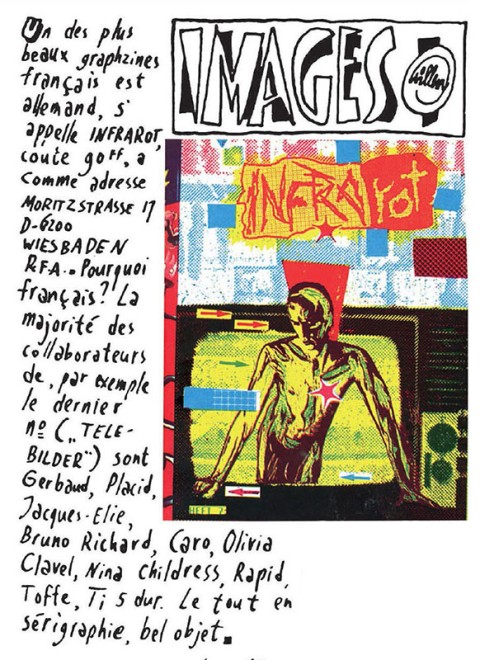 IMAGES
Willem
Un des plus
beaux graphzines
français est
allemand, s'
appelle INFRAROT,
coute 90FF, a
comme adresse
MORITZSTRASSE 17
D-6200
WIESBADEN
R.F.A.. Pourquoi
français? La
majorité des
collaborateurs
de, par exemple
le dernier
nº („TELE-
BILDER") sont
Gerbaud, Placid,
Jacques-Elie,
Bruno Richard, Caro, Olivia
Clavel, Nina Childress, Rapid,
Toffe, Ti 5 dur. Le tout en
sérigraphie, bel objet.
INFRAROT
HEFT 7